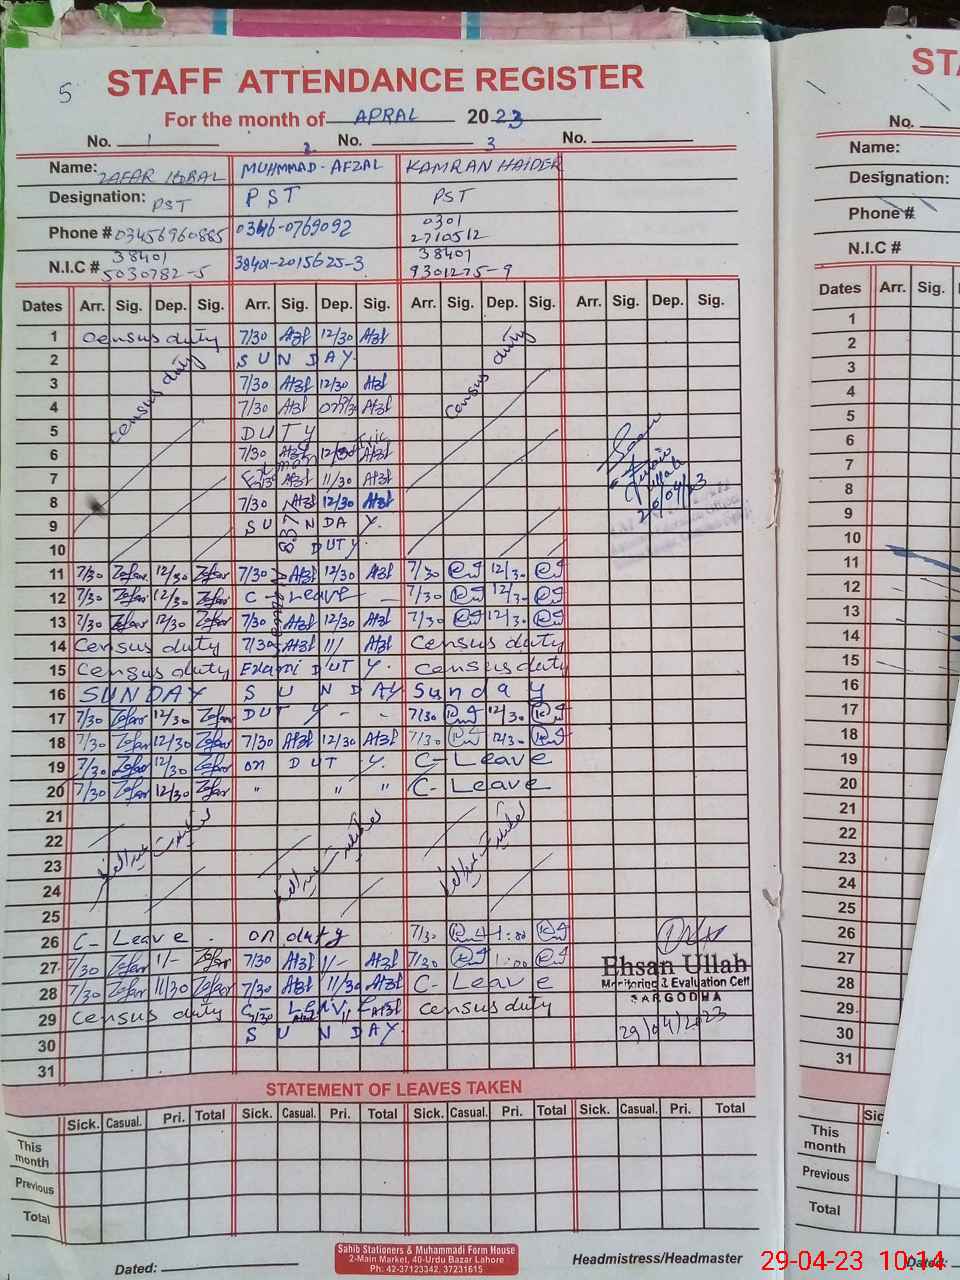 5
STAFF ATTENDANCE REGISTER
STA
For the month of APRAL 2023
No. 1 No. 2 No. 3
No.
Name: ZAFAR IQBAL MUHMMAD-AFZAL KAMRAN HAIDER
Name:
Designation: PST PST PST
Designation:
Phone # 03456960885 0346-0769092 0301 2710512
Phone #
N.I.C # 38401 5030782-5 38401-2015625-3 38401 9301275-9
N.I.C #
Dates Arr. Sig. Dep. Sig. Arr. Sig. Dep. Sig. Arr. Sig. Dep. Sig. Arr. Sig. Dep. Sig.
Dates Arr. Sig.
1 Census duty 7/30 Afzl 12/30 Afzl
2 SUN DAY.
census duty
census duty
3 7/30 Afzl 12/30 Afzl
4 7/30 Afzl Afzl
5 DUTY
6 7/30 Afzl 12/30 Afzl
7 Afzl 11/30 Afzl
8 7/30 Afzl 12/30 Afzl
20/04/23
9 SUNDAY.
10 DUTY.
11 7/30 Zafar 12/30 Zafar 7/30 Afzl 12/30 Afzl 7/30 12/30
12 7/30 Zafar 12/30 Zafar C-Leave 7/30 12/30
13 7/30 Zafar 12/30 Zafar 7/30 Afzl 12/30 Afzl 7/30 12/30
14 Census duty 7/30 Afzl 11/ Afzl Census duty
15 Census duty Exami DUTY. Census duty
16 SUNDAY SUNDAY Sunday
17 7/30 Zafar 12/30 Zafar DUTY - - 7/30 12/30
18 7/30 Zafar 12/30 Zafar 7/30 Afzl 12/30 Afzl 7/30 12/30
19 7/30 Zafar 12/30 Zafar on DUTY. C-Leave
20 7/30 Zafar 12/30 Zafar " " " C-Leave
21
22
تعطیلات عیدالفطر تعطیلات عیدالفطر تعطیلات عیدالفطر
23
24
25
26 C-Leave. on duty 7/30 1:00
27 7/30 Zafar 1/- Zafar 7/30 Afzl 1/- Afzl 7/30 1:00
28 7/30 Zafar 11/30 Zafar 7/30 Afzl 11/30 Afzl C-Leave
Ehsan Ullah
Monitoring & Evaluation Cell
SARGODHA
29/04/2023
29 Census duty census duty
30 SUNDAY.
31
1
2
3
4
5
6
7
8
9
10
11
12
13
14
15
16
17
18
19
20
21
22
23
24
25
26
27
28
29
30
31
STATEMENT OF LEAVES TAKEN
Sick. Casual. Pri. Total Sick. Casual. Pri. Total Sick. Casual. Pri. Total Sick. Casual. Pri. Total
Sic
This month
This month
Previous
Previous
Total
Total
Dated:
Sahib Stationers & Muhammadi Form House
2-Main Market, 40-Urdu Bazar Lahore
Ph: 42-37123342, 37231615
Headmistress/Headmaster
Dated:
29-04-23 10:14